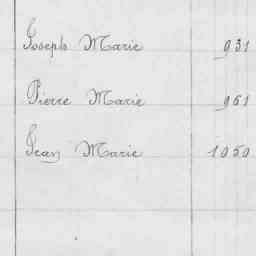 Joseph Marie 931
Pierre Marie 961
Jean Marie 1050